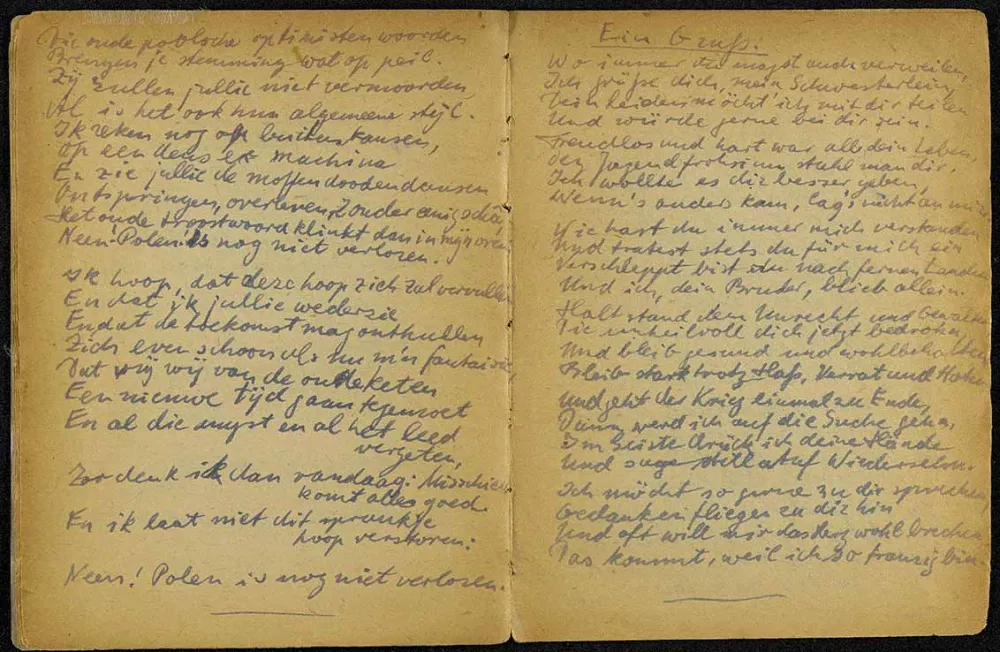 Die oude poolsche optimistenwoorden
Brengen je stemming wat op peil.
Zij zullen jullie niet vermoorden
Al is het ook hun algemeene stijl.
Ik reken nog op buitenkansen,
Op een deus ex machina
En zie jullie de moffendoodendansen
Ontspringen, overleven, zonder eenig schâ,
Het oude troostwoord klinkt dan in mijn oren
Neen. Polen is nog niet verloren.
Ik hoop, dat deze hoop zich zal vervullen
En dat ik jullie wederzie
En dat de toekomst mag onthullen
Zich even schoon als nu m'n fantaisie
Dat wij van de oude keten
Een nieuwe tijd gaan tegemoet
En al die angst en al het leed
vergeten,
Zoo denk ik dan vandaag: Misschien
komt alles goed.
En ik laat niet dit sprankje
hoop verstoren:
Neen! Polen is nog niet verloren.
Ein Gruß.
Wo immer du magst auch verweilen,
Ich grüße dich, mein Schwesterlein,
Dein Leiden möcht ich mit dir teilen
Und würde gerne bei dir sein.
Freudlos und hart war all dein Leben,
Den Jugendfrohsinn stahl man dir.
Ich wollte es dir besser geben,
Wenn's anders kam, lag's nicht an mir.
Wie hast du immer mich verstanden
Und tratest stets du für mich ein
Verschleppt bist du nach fernen Landen
Und ich, dein Bruder, blieb allein.
Halt stand dem Unrecht und Gewalten
Die unheilvoll dich jetzt bedrohen,
Und bleib gesund und wohlbehalten,
Bleib stark trotz Haß, Verrat und Hohn.
Und geht der Krieg einmal zu Ende,
Dann werd ich auf die Suche gehn,
Im Geiste drück ich deine Hände
Und sage still auf Wiedersehn.
Ich möcht so gerne zu dir sprechen,
Gedanken fliegen zu dir hin
Und oft will mir das Herz wohl brechen
Das kommt, weil ich so traurig bin.